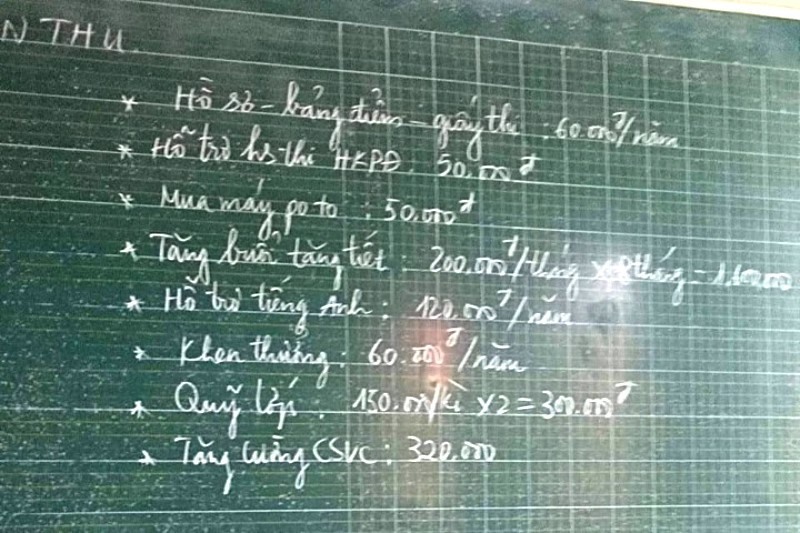 N THU
* Hồ sơ - bảng điểm - giấy thi : 60.000đ/năm
* Hỗ trợ hs thi HKPĐ: 50.000đ
* Mua máy poto : 50.000đ
* Tăng buổi tăng tiết : 200.000đ/tháng x 8 tháng =
* Hỗ trợ tiếng Anh : 120.000đ/năm
* Khen thưởng : 60.000đ/năm
* Quỹ lớp : 150.000/kì x2 = 300.000đ
* Tăng cường CSVC : 320.000